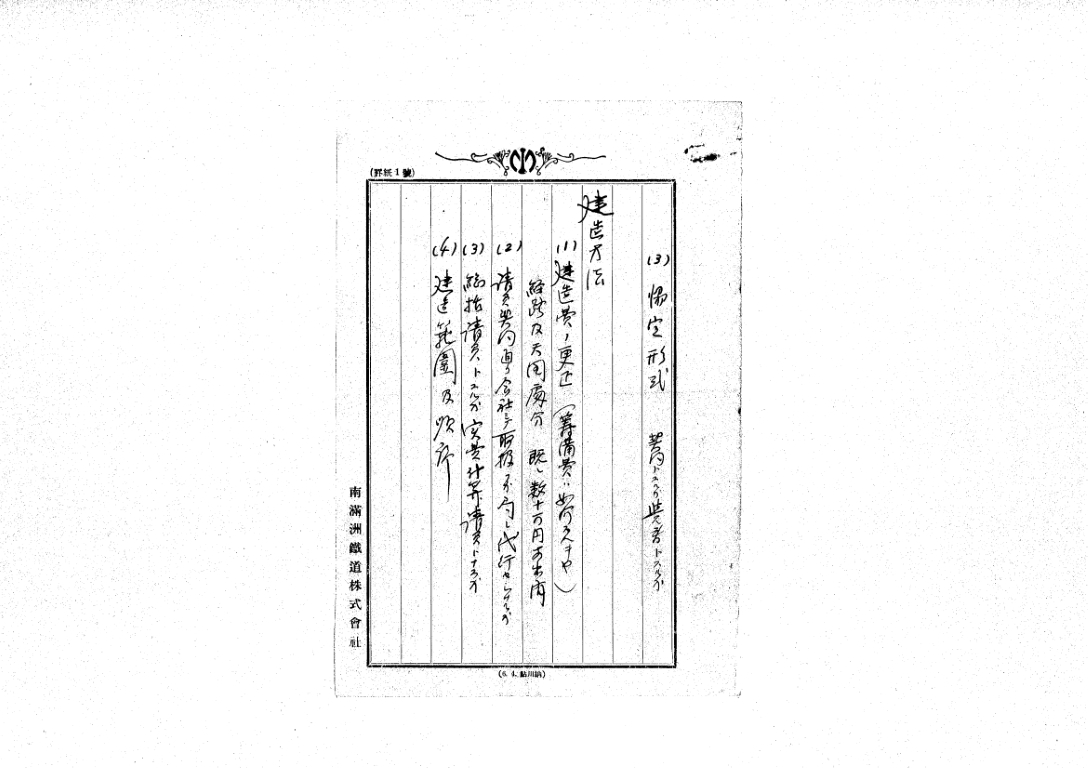 (3) 協定形式 契約トスルカ覚書トスルカ
建造方法
(1) 建造費ノ更正(準備費ハ如何スベキヤ)
経路及天図處分 既ニ数十万円支出済
(2) 請負契約通リ会社ニテ取扱フカ局ニ代行セシムルカ
(3) 総括請負トスルカ実費計算請負トナスカ
(4) 建造範圍及順序
(罫紙1號)
南滿洲鐵道株式會社
(6. 4. 鮎川納)